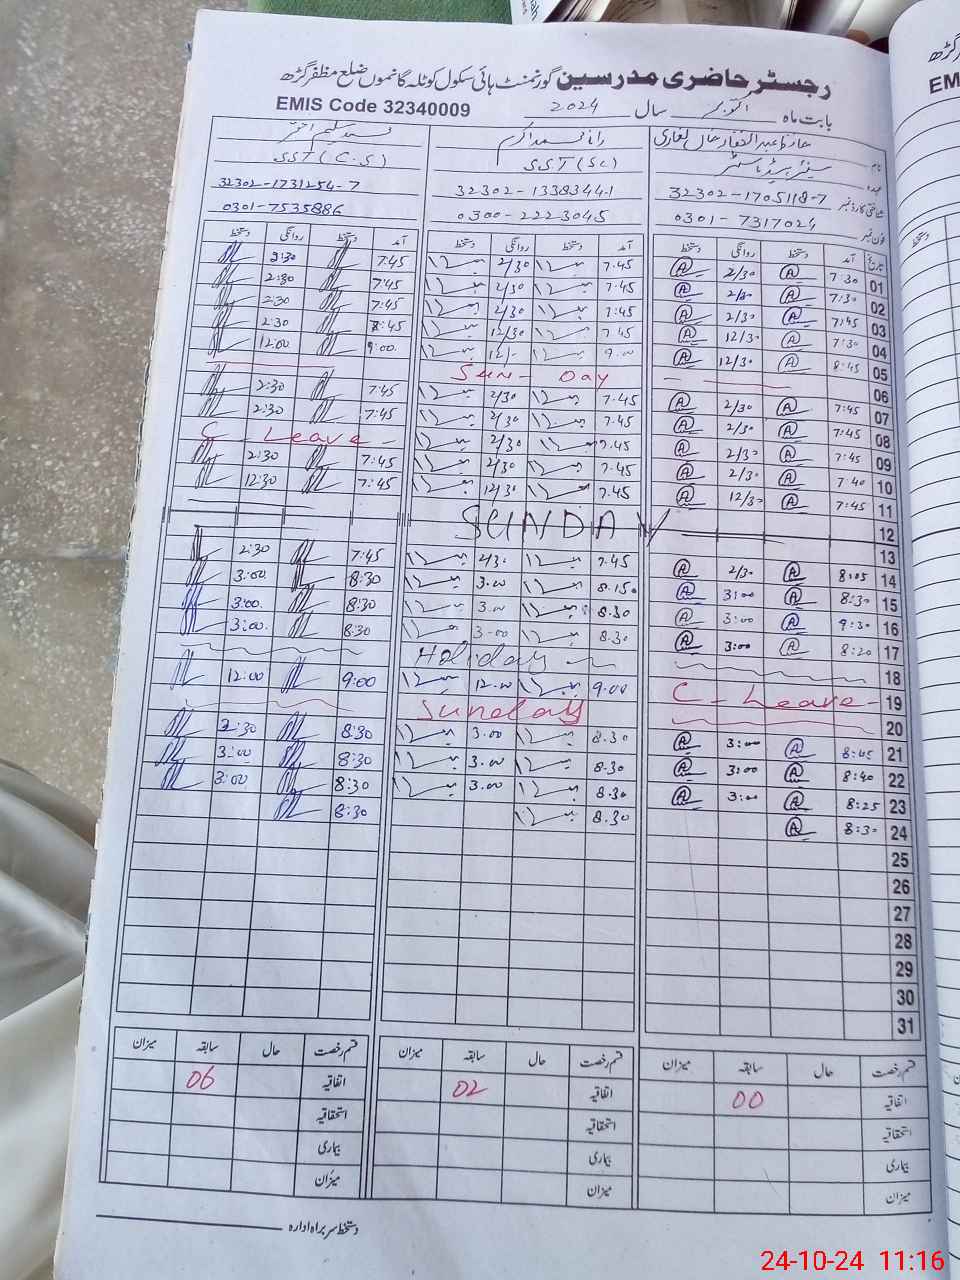 رجسٹر حاضری مدرسین گورنمنٹ ہائی سکول کوٹلہ گانموں ضلع مظفر گڑھ
EMIS Code 32340009
بابت ماہ اکتوبر سال 2024
حافظ عبدالغفار خان لغاری رانا محمد اکرم
نام
سینئر ہیڈ ماسٹر SST (SC) SST (C.S)
عہدہ
شناختی کارڈ نمبر 32302-1705118-7 32302-13383441 32302-1731254-7
فون نمبر 0301-7317024 0300-2223045 0301-7535886
تاریخ آمد دستخط روانگی دستخط آمد دستخط روانگی دستخط آمد دستخط روانگی دستخط
01 7:30 2/30 7.45 2/30 7:45 2:30
02 7:30 2/30 7.45 2/30 7:45 2:30
03 7:45 2/30 7.45 2/30 7:45 2:30
04 7:30 12/30 7.45 12/30 8:45 2:30
05 8:45 12/30 9.00 12/- 9:00 12:00
06 Sun - Day
07 7:45 2/30 7.45 2/30 7:45 2:30
08 7:45 2/30 7.45 2/30 7:45 2:30
09 7:45 2/30 7.45 2/30 C - Leave -
10 7:40 2/30 7.45 2/30 7:45 2:30
11 7:45 12/30 7.45 12/30 7:45 12:30
12 SUNDAY
13
14 8:05 2/30 7.45 2/30 7:45 2:30
15 8:30 3:00 8.15 3.00 8:30 3:00
16 9:30 3:00 8.30 3.00 8:30 3:00.
17 8:20 3:00 8.30 3.00 8:30 3:00.
18 Holiday
19 C - Leave - 9.00 12.00 9:00 12:00
20 Sunday
21 8:45 3:00 8.30 3.00 8:30 2:30
22 8:40 3:00 8.30 3.00 8:30 3:00
23 8:25 3:00 8.30 3.00 8:30 3:00
24 8:30 8.30 8:30
25
26
27
28
29
30
31
قسم رخصت حال سابقہ میزان قسم رخصت حال سابقہ میزان قسم رخصت حال سابقہ میزان
اتفاقیہ 00 اتفاقیہ 02 اتفاقیہ 06
استحقاقیہ استحقاقیہ استحقاقیہ
بیماری بیماری بیماری
میزان میزان میزان
دستخط سربراہ ادارہ
24-10-24 11:16